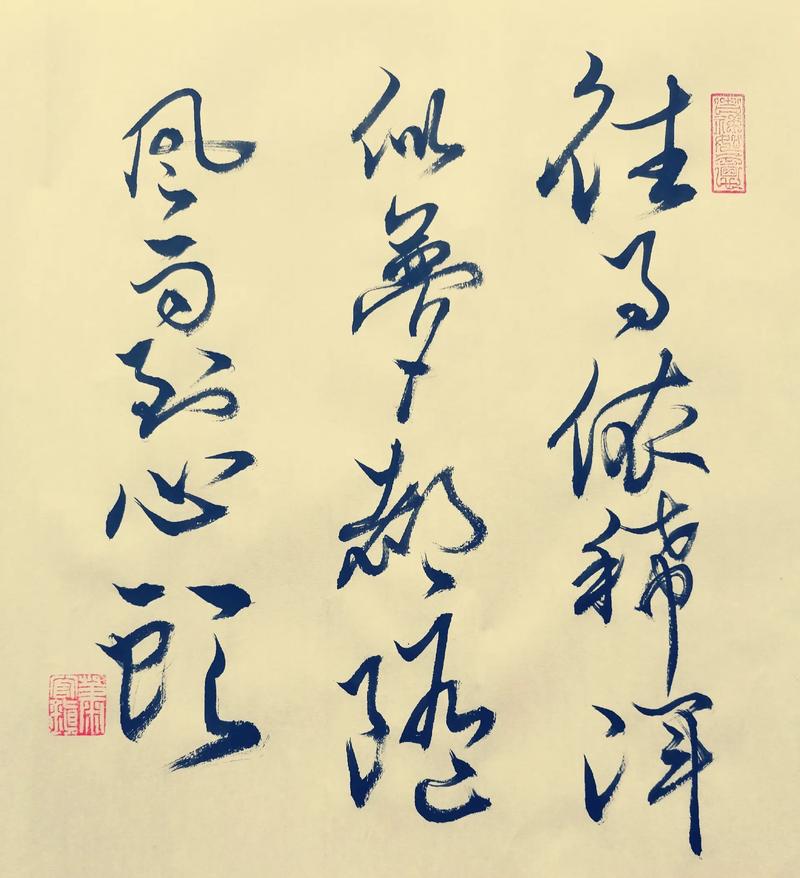 往事依稀浑
似梦都随
风雨到心头